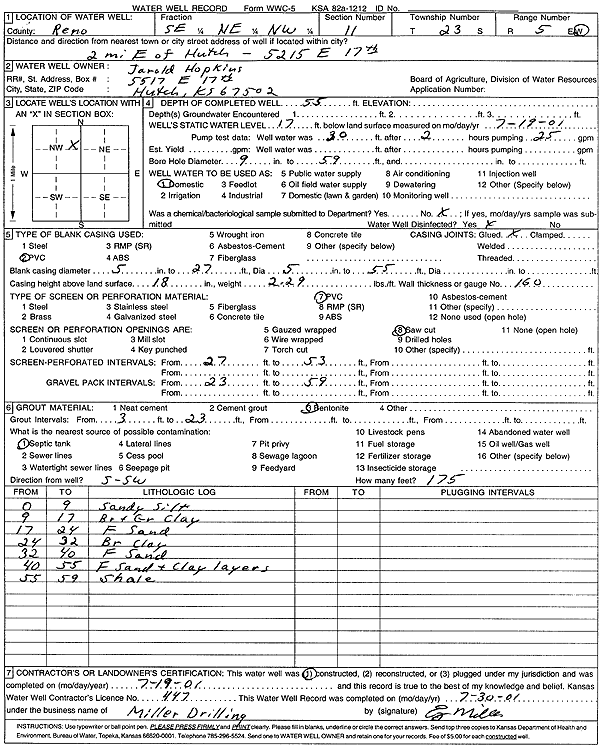 WATER WELL RECORD Form WWC-5 KSA 82a-1212 ID No.
1 LOCATION OF WATER WELL: Fraction Section Number Township Number Range Number
County: Reno SE ¼ NE ¼ NW ¼ 11 T 23 S R 5 E(W)
Distance and direction from nearest town or city street address of well if located within city?
2 mi E of Hutch - 5215 E 17th
2 WATER WELL OWNER: Jarold Hopkins
RR#, St. Address, Box # : 5517 E 17th Board of Agriculture, Division of Water Resources
City, State, ZIP Code : Hutch, KS 67502 Application Number:
3 LOCATE WELL'S LOCATION WITH AN "X" IN SECTION BOX:
N
NW X NE
W E
SW SE
S
1 Mile
4 DEPTH OF COMPLETED WELL 55 ft. ELEVATION:
Depth(s) Groundwater Encountered 1 ft. 2 ft. 3 ft.
WELL'S STATIC WATER LEVEL 17 ft. below land surface measured on mo/day/yr 7-19-01
Pump test data: Well water was 30 ft. after 2 hours pumping 25 gpm
Est. Yield gpm: Well water was ft. after hours pumping gpm
Bore Hole Diameter 9 in. to 59 ft., and in. to ft.
WELL WATER TO BE USED AS: 5 Public water supply 8 Air conditioning 11 Injection well
1 Domestic 3 Feedlot 6 Oil field water supply 9 Dewatering 12 Other (Specify below)
2 Irrigation 4 Industrial 7 Domestic (lawn & garden) 10 Monitoring well
Was a chemical/bacteriological sample submitted to Department? Yes No X ; If yes, mo/day/yrs sample was submitted Water Well Disinfected? Yes X No
5 TYPE OF BLANK CASING USED: 5 Wrought iron 8 Concrete tile CASING JOINTS: Glued X Clamped
1 Steel 3 RMP (SR) 6 Asbestos-Cement 9 Other (specify below) Welded
2 PVC 4 ABS 7 Fiberglass Threaded
Blank casing diameter 5 in. to 27 ft., Dia 5 in. to 55 ft., Dia in. to ft.
Casing height above land surface 18 in., weight 2.29 lbs./ft. Wall thickness or gauge No. 160
TYPE OF SCREEN OR PERFORATION MATERIAL: 7 PVC 10 Asbestos-cement
1 Steel 3 Stainless steel 5 Fiberglass 8 RMP (SR) 11 Other (specify)
2 Brass 4 Galvanized steel 6 Concrete tile 9 ABS 12 None used (open hole)
SCREEN OR PERFORATION OPENINGS ARE: 5 Gauzed wrapped 8 Saw cut 11 None (open hole)
1 Continuous slot 3 Mill slot 6 Wire wrapped 9 Drilled holes
2 Louvered shutter 4 Key punched 7 Torch cut 10 Other (specify) ft.
SCREEN-PERFORATED INTERVALS: From 27 ft. to 53 ft., From ft. to ft.
From ft. to ft., From ft. to ft.
GRAVEL PACK INTERVALS: From 23 ft. to 59 ft., From ft. to ft.
From ft. to ft., From ft. to ft.
6 GROUT MATERIAL: 1 Neat cement 2 Cement grout 3 Bentonite 4 Other
Grout Intervals: From 3 ft. to 23 ft., From ft. to ft., From ft. to ft.
What is the nearest source of possible contamination: 10 Livestock pens 14 Abandoned water well
1 Septic tank 4 Lateral lines 7 Pit privy 11 Fuel storage 15 Oil well/Gas well
2 Sewer lines 5 Cess pool 8 Sewage lagoon 12 Fertilizer storage 16 Other (specify below)
3 Watertight sewer lines 6 Seepage pit 9 Feedyard 13 Insecticide storage
Direction from well? S-SW How many feet? 175
FROM TO LITHOLOGIC LOG FROM TO PLUGGING INTERVALS
0 9 Sandy Silt
9 17 Br + Gr Clay
17 24 F Sand
24 32 Br Clay
32 40 F Sand
40 55 F Sand + Clay layers
55 59 Shale
7 CONTRACTOR'S OR LANDOWNER'S CERTIFICATION: This water well was (1) constructed, (2) reconstructed, or (3) plugged under my jurisdiction and was
completed on (mo/day/year) 7-19-01 and this record is true to the best of my knowledge and belief. Kansas
Water Well Contractor's Licence No. 447 This Water Well Record was completed on (mo/day/yr) 7-30-01
under the business name of Miller Drilling by (signature)
INSTRUCTIONS: Use typewriter or ball point pen. PLEASE PRESS FIRMLY and PRINT clearly. Please fill in blanks, underline or circle the correct answers. Send top three copies to Kansas Department of Health and
Environment, Bureau of Water, Topeka, Kansas 66620-0001. Telephone 785-296-5524. Send one to WATER WELL OWNER and retain one for your records. Fee of $5.00 for each constructed well.